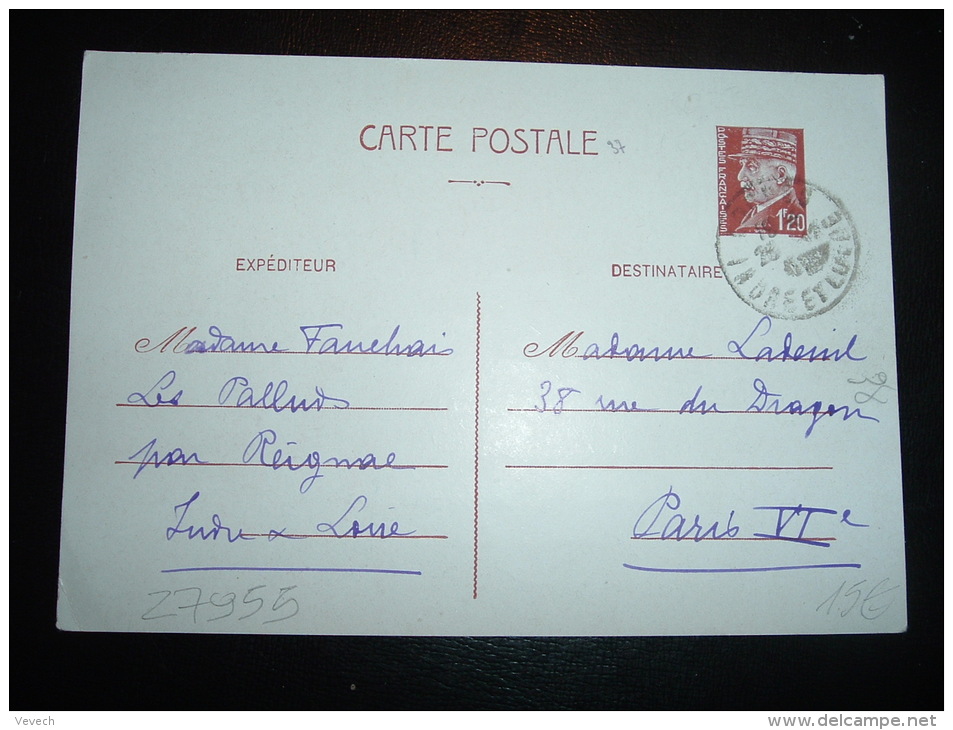 CARTE POSTALE
37
POSTES FRANÇAISES
1F20
INDRE ET LOIRE
EXPÉDITEUR
DESTINATAIRE
Madame Fauchais
Les Palluds
par Reignac
Indre & Loire
Madame Ladeuil
38 rue du Dragon
Paris VIe
27955
15€
Vevech
www.delcampe.net